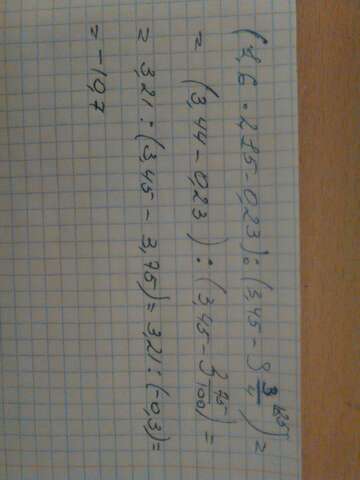 (1,6 · 2,15 - 0,23) : (3,45 - 3 3/4 ·25) =
= (3,44 - 0,23) : (3,45 - 3 75/100) =
= 3,21 : (3,45 - 3,75) = 3,21 : (-0,3) =
= -10,7